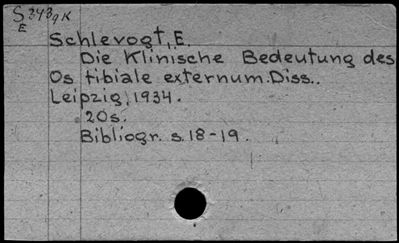 S 343gK
E
Schlevogt, E.
Die Klinische Bedeutung des
Os tibiale externum. Diss..
Leipzig, 1934.
20s.
Bibliogr. s. 18-19.